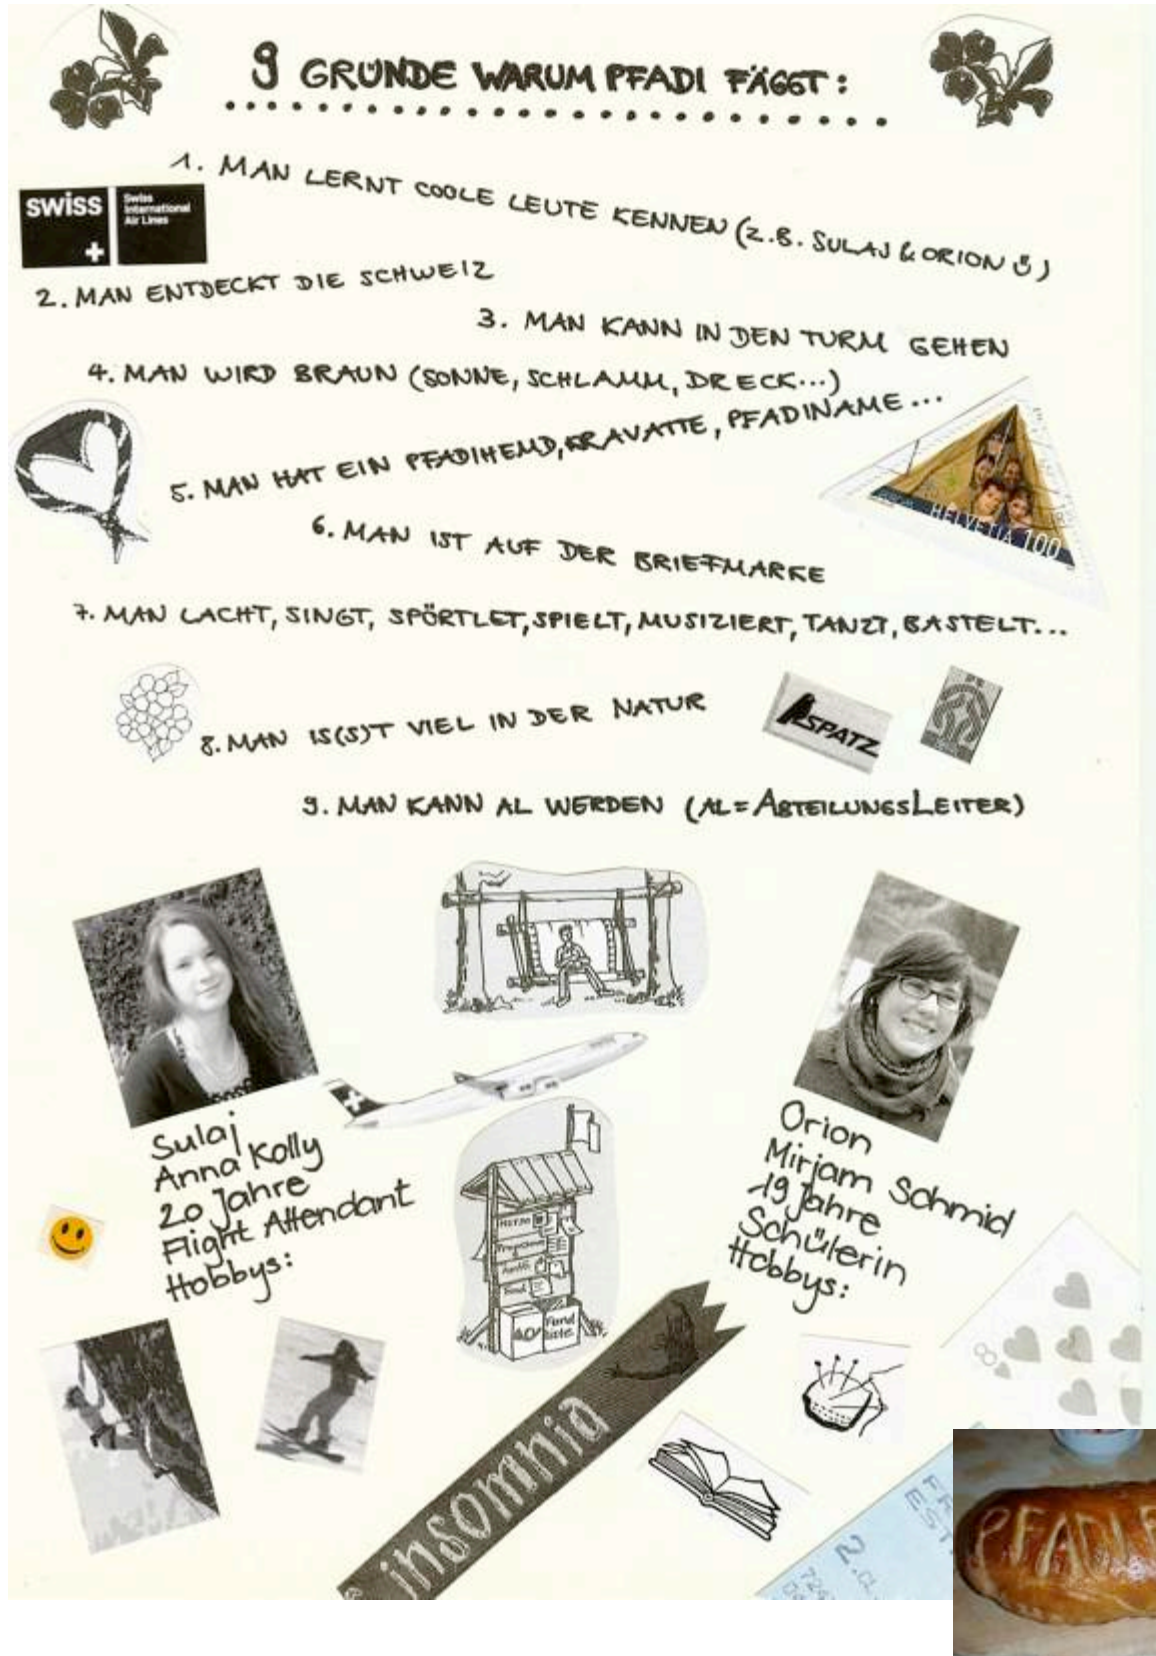 9 GRÜNDE WARUM PFADI FÄGGT:
1. MAN LERNT COOLE LEUTE KENNEN (Z.B. SULAJ & ORION)
swiss
Swiss
International
Air Lines
2. MAN ENTDECKT DIE SCHWEIZ
3. MAN KANN IN DEN TURM GEHEN
4. MAN WIRD BRAUN (SONNE, SCHLAMM, DRECK...)
5. MAN HAT EIN PFADIHEMD, KRAVATTE, PFADINAME...
HELVETIA 100
6. MAN IST AUF DER BRIEFMARKE
7. MAN LACHT, SINGT, SPÖRTLET, SPIELT, MUSIZIERT, TANZT, BASTELT...
SPATZ
8. MAN IS(S)T VIEL IN DER NATUR
9. MAN KANN AL WERDEN (AL = ABTEILUNGSLEITER)
Sulaj
Anna Kolly
20 Jahre
Flight Attendant
Hobbys:
Orion
Mirjam Schmid
19 Jahre
Schülerin
Hobbys:
Programm
Fund
kiste
insomnia
8
PFADI